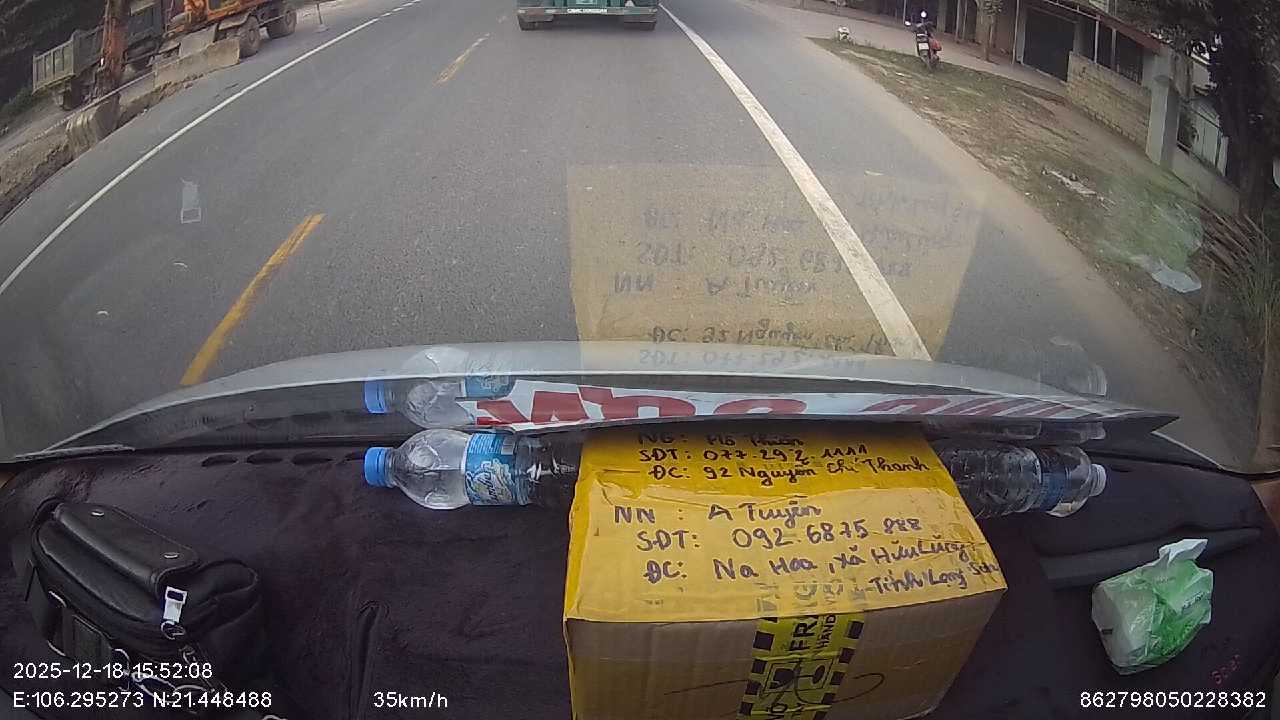 NG: Hồ Thiên
SĐT: 077.292.1111
ĐC: 92 Nguyễn Chí Thanh
NN : A Tuyến
SĐT: 092 6875 888
ĐC: Na Hoa, xã Hữu Lũng,
-Tỉnh Lạng Sơn
2025-12-18 15:52:08
E:106.295273 N:21.448488
35km/h
862798050228382